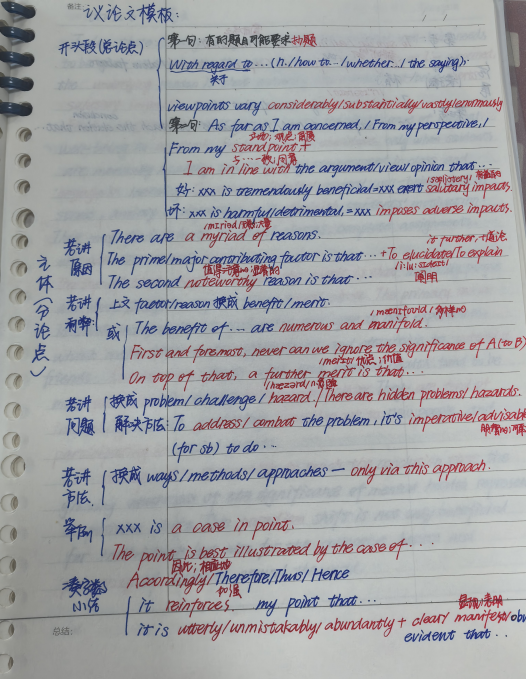 备注：
议论文模板：
开头段(总论点)
第一句：有的题目可能要求扣题
With regard to …(n./how to…/whether…/the saying):
关于
viewpoints vary considerably/substantially/vastly/enormously
第二句： As far as I am concerned, / From my perspective, /
立场；观点；角度
From my standpoint +
与……一致，同意
I am in line with the argument/view/opinion that…
好：xxx is tremendously beneficial=xxx exert salutary impacts.
坏：xxx is harmful/detrimental.=xxx imposes adverse impacts.
主体(分论点)
若讲原因
There are a myriad of reasons.
The prime/major contributing factor is that…+To elucidate/To explain
it further,+
值得注意的
The second noteworthy reason is that…
阐明
若讲
上文factor/reason 换成 benefit/merit.
或
The benefit of … are numerous and manifold.
First and foremost, never can we ignore the significance of A(to B)
merit/优点；价值
On top of that, a further merit is that…
若讲问题
换成problem/challenge/hazard. /There are hidden problems/hazards.
解决方法：To address/combat the problem, it's imperative/advisable
(for sb) to do…
若讲方法
换成 ways/methods/approaches — only via this approach.
举例
xxx is a case in point.
The point is best illustrated by the case of…
因此；相应地
Accordingly/Therefore/Thus/Hence
小结
加强
it reinforces my point that…
it is utterly/unmistakably/abundantly + clear/manifest/obv
evident that…
总结：